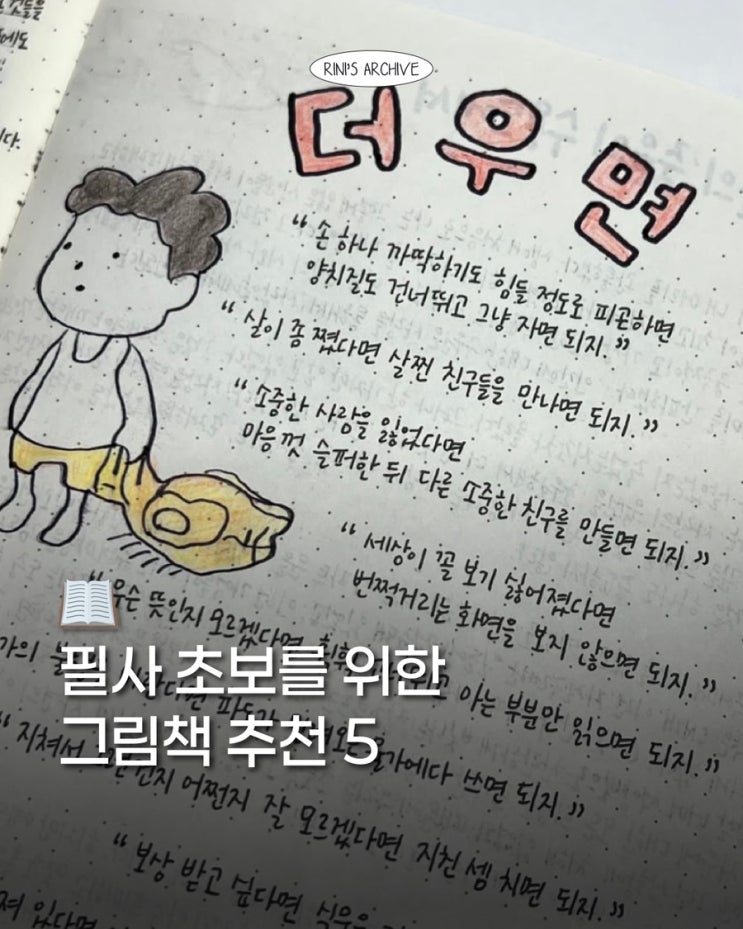 것들을
RINI'S ARCHIVE
더우면
“손 하나 까딱하기도 힘들 정도로 피곤하면
양치질도 건너뛰고 그냥 자면 되지.”
“살이 좀 쪘다면 살찐 친구들을 만나면 되지.”
“소중한 사람을 잃었다면
마음껏 슬퍼한 뒤 다른 소중한 친구를 만들면 되지.”
“세상이 꼴 보기 싫어졌다면
번쩍거리는 화면을 보지 않으면 되지.”
뜻인지 모르겠다면 아는 부분만 읽으면 되지.”
필사 초보를 위한
그림책 추천 5
쓰면 되지.”
“지쳐서 어쩐지 잘 모르겠다면 지친 셈 치면 되지.”
“보상 받고 싶다면